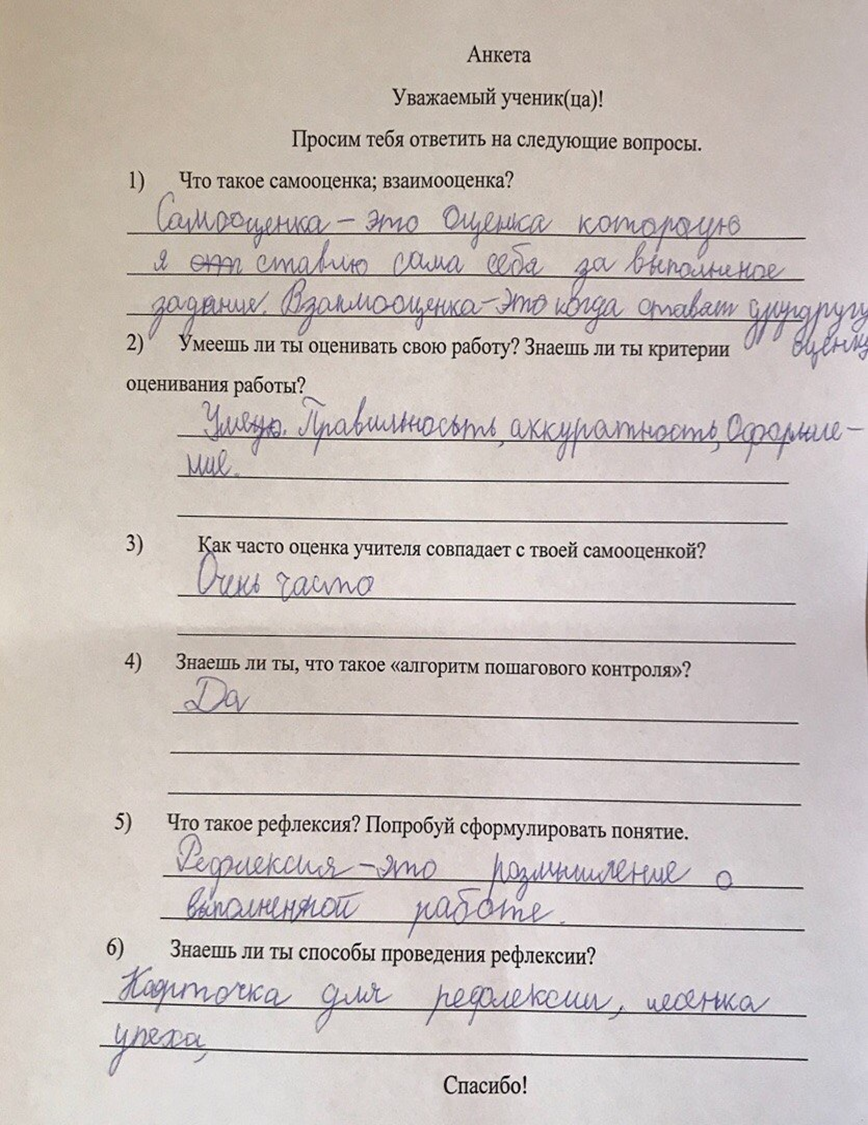 Анкета
Уважаемый ученик(ца)!
Просим тебя ответить на следующие вопросы.
1) Что такое самооценка; взаимооценка?
Самооценка – это оценка которую
я ставлю сама себя за выполненое
задание. Взаимооценка – это когда стават другдругу
оценку
2) Умеешь ли ты оценивать свою работу? Знаешь ли ты критерии
оценивания работы?
Умею. Правильность, аккуратность, Оформле–
ние.
3) Как часто оценка учителя совпадает с твоей самооценкой?
Очень часто
4) Знаешь ли ты, что такое «алгоритм пошагового контроля»?
Да
5) Что такое рефлексия? Попробуй сформулировать понятие.
Рефлексия – это размышление о
выполненной работе.
6) Знаешь ли ты способы проведения рефлексии?
Карточка для рефлексии, лесенка
упеха,
Спасибо!